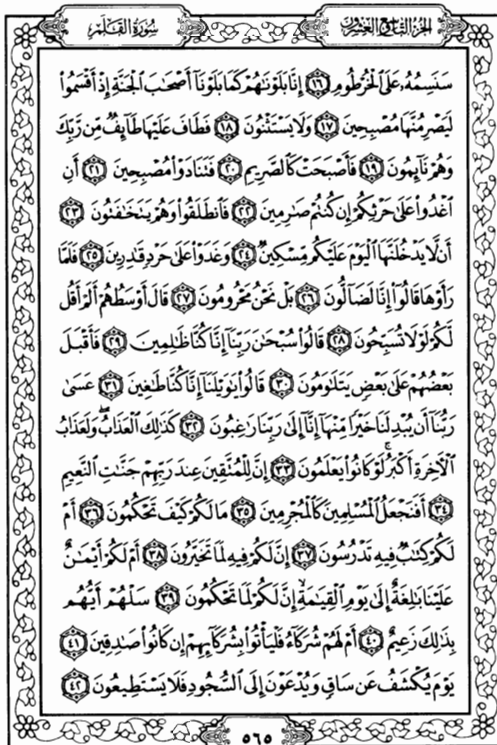 الجزء التاسع والعشرون
سورة القلم
سَنَسِمُهُۥ عَلَى ٱلۡخُرۡطُومِ ١٦ إِنَّا بَلَوۡنَٰهُمۡ كَمَا بَلَوۡنَآ أَصۡحَٰبَ ٱلۡجَنَّةِ إِذۡ أَقۡسَمُواْ
لَيَصۡرِمُنَّهَا مُصۡبِحِينَ ١٧ وَلَا يَسۡتَثۡنُونَ ١٨ فَطَافَ عَلَيۡهَا طَآئِفٞ مِّن رَّبِّكَ
وَهُمۡ نَآئِمُونَ ١٩ فَأَصۡبَحَتۡ كَٱلصَّرِيمِ ٢٠ فَتَنَادَوۡاْ مُصۡبِحِينَ ٢١ أَنِ
ٱغۡدُواْ عَلَىٰ حَرۡثِكُمۡ إِن كُنتُمۡ صَٰرِمِينَ ٢٢ فَٱنطَلَقُواْ وَهُمۡ يَتَخَٰفَتُونَ ٢٣
أَن لَّا يَدۡخُلَنَّهَا ٱلۡيَوۡمَ عَلَيۡكُم مِّسۡكِينٞ ٢٤ وَغَدَوۡاْ عَلَىٰ حَرۡدٖ قَٰدِرِينَ ٢٥ فَلَمَّا
رَأَوۡهَا قَالُوٓاْ إِنَّا لَضَآلُّونَ ٢٦ بَلۡ نَحۡنُ مَحۡرُومُونَ ٢٧ قَالَ أَوۡسَطُهُمۡ أَلَمۡ أَقُل
لَّكُمۡ لَوۡلَا تُسَبِّحُونَ ٢٨ قَالُواْ سُبۡحَٰنَ رَبِّنَآ إِنَّا كُنَّا ظَٰلِمِينَ ٢٩ فَأَقۡبَلَ
بَعۡضُهُمۡ عَلَىٰ بَعۡضٖ يَتَلَٰوَمُونَ ٣٠ قَالُواْ يَٰوَيۡلَنَآ إِنَّا كُنَّا طَٰغِينَ ٣١ عَسَىٰ
رَبُّنَآ أَن يُبۡدِلَنَا خَيۡرٗا مِّنۡهَآ إِنَّآ إِلَىٰ رَبِّنَا رَٰغِبُونَ ٣٢ كَذَٰلِكَ ٱلۡعَذَابُۖ وَلَعَذَابُ
ٱلۡأٓخِرَةِ أَكۡبَرُۚ لَوۡ كَانُواْ يَعۡلَمُونَ ٣٣ إِنَّ لِلۡمُتَّقِينَ عِندَ رَبِّهِمۡ جَنَّٰتِ ٱلنَّعِيمِ
٣٤ أَفَنَجۡعَلُ ٱلۡمُسۡلِمِينَ كَٱلۡمُجۡرِمِينَ ٣٥ مَا لَكُمۡ كَيۡفَ تَحۡكُمُونَ ٣٦ أَمۡ
لَكُمۡ كِتَٰبٞ فِيهِ تَدۡرُسُونَ ٣٧ إِنَّ لَكُمۡ فِيهِ لَمَا تَخَيَّرُونَ ٣٨ أَمۡ لَكُمۡ أَيۡمَٰنٌ
عَلَيۡنَا بَٰلِغَةٌ إِلَىٰ يَوۡمِ ٱلۡقِيَٰمَةِۙ إِنَّ لَكُمۡ لَمَا تَحۡكُمُونَ ٣٩ سَلۡهُمۡ أَيُّهُم
بِذَٰلِكَ زَعِيمٌ ٤٠ أَمۡ لَهُمۡ شُرَكَآءُ فَلۡيَأۡتُواْ بِشُرَكَآئِهِمۡ إِن كَانُواْ صَٰدِقِينَ ٤١
يَوۡمَ يُكۡشَفُ عَن سَاقٖ وَيُدۡعَوۡنَ إِلَى ٱلسُّجُودِ فَلَا يَسۡتَطِيعُونَ ٤٢
٥٦٥